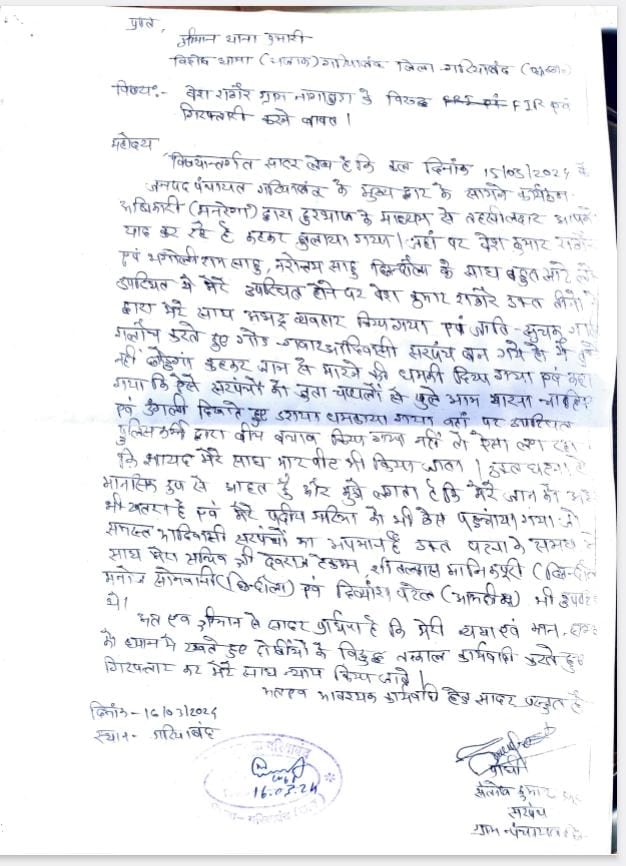 प्रति,
श्रीमान थाना प्रभारी
विशेष थाना (अजाक) गरियाबंद जिला - गरियाबंद
विषय:- वेश राठौर ग्राम के विरुद्ध FIR एवं
गिरफ्तारी करने बाबत।
महोदय
विषयान्तर्गत सादर लेख है कि कल दिनांक 15/03/2024 के
जनपद पंचायत गरियाबंद के मुख्य द्वार के सामने कार्यक्रम
अधिकारी (मनरेगा) द्वारा दुरभाष के माध्यम से तहसीलदार आपको
याद कर रहे है कहकर बुलाया गया। जहाँ पर वेश कुमार राठौर
एवं राम साहु, नरोत्तम साहु के साथ बहुत सारे लोग
उपस्थित थे मेरे उपस्थित होने पर वेश कुमार राठौर उक्त तीनों
द्वारा मेरे साथ अभद्र व्यवहार किया गया एवं जाति-सूचक
गलौच करते हुए गोड गवार आदिवासी सरपंच बन गये हो मैं
नहीं छोडुंगा कहकर जान से मारने की धमकी दिया गया एवं कहा
गया कि ऐसे सरपंचों को जुता चप्पलों से खुले आम मारना चाहिए
एवं उंगली दिखाते हुए डराया धमकाया गया वहां पर उपस्थित
पुलिसकर्मी द्वारा बीच बचाव किया गया नहीं तो ऐसा लग रहा
कि शायद मेरे साथ मार पीट भी किया जाता। उक्त घटना से
मानसिक रूप से आहत हूँ और मुझे लगता है कि मेरे जान का
भी खतरा है एवं मेरे पदीय गरिमा को भी ठेस पहुंचाया गया जो
समस्त आदिवासी सरपंचों का अपमान है उक्त घटना के समय मेरे
साथ मेरा सचिव श्री देवराज टेकाम, श्री मानिकपुरी
मनोज सोनवानी एवं पटेल भी उपस्थित
थे।
अत एव श्रीमान से सादर प्रार्थना है कि मेरी व्यथा एवं मान-
को ध्यान मे रखते हुए दोषीयों के विरुद्ध तत्काल कार्यवाही करते हुए
गिरफ्तार कर मेरे साथ न्याय किया जावे।
अतएव आवश्यक कार्यवाही हेतु सादर प्रस्तुत है
दिनांक - 16/03/2024
स्थान - गरियाबंद
16.03.24
प्रार्थी
संतोष कुमार
सरपंच
ग्राम पंचायत